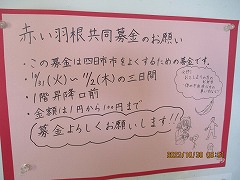 赤い羽根共同募金のお願い
・この募金は四日市市をよくするための募金です。
・10/31(火)〜11/2(木)の三日間
1階昇降口前
・金額は1円から100円まで
募金よろしくお願いします!!!